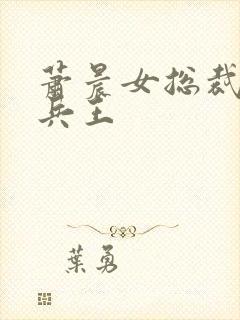 萧晨女总裁
兵王
葉勇